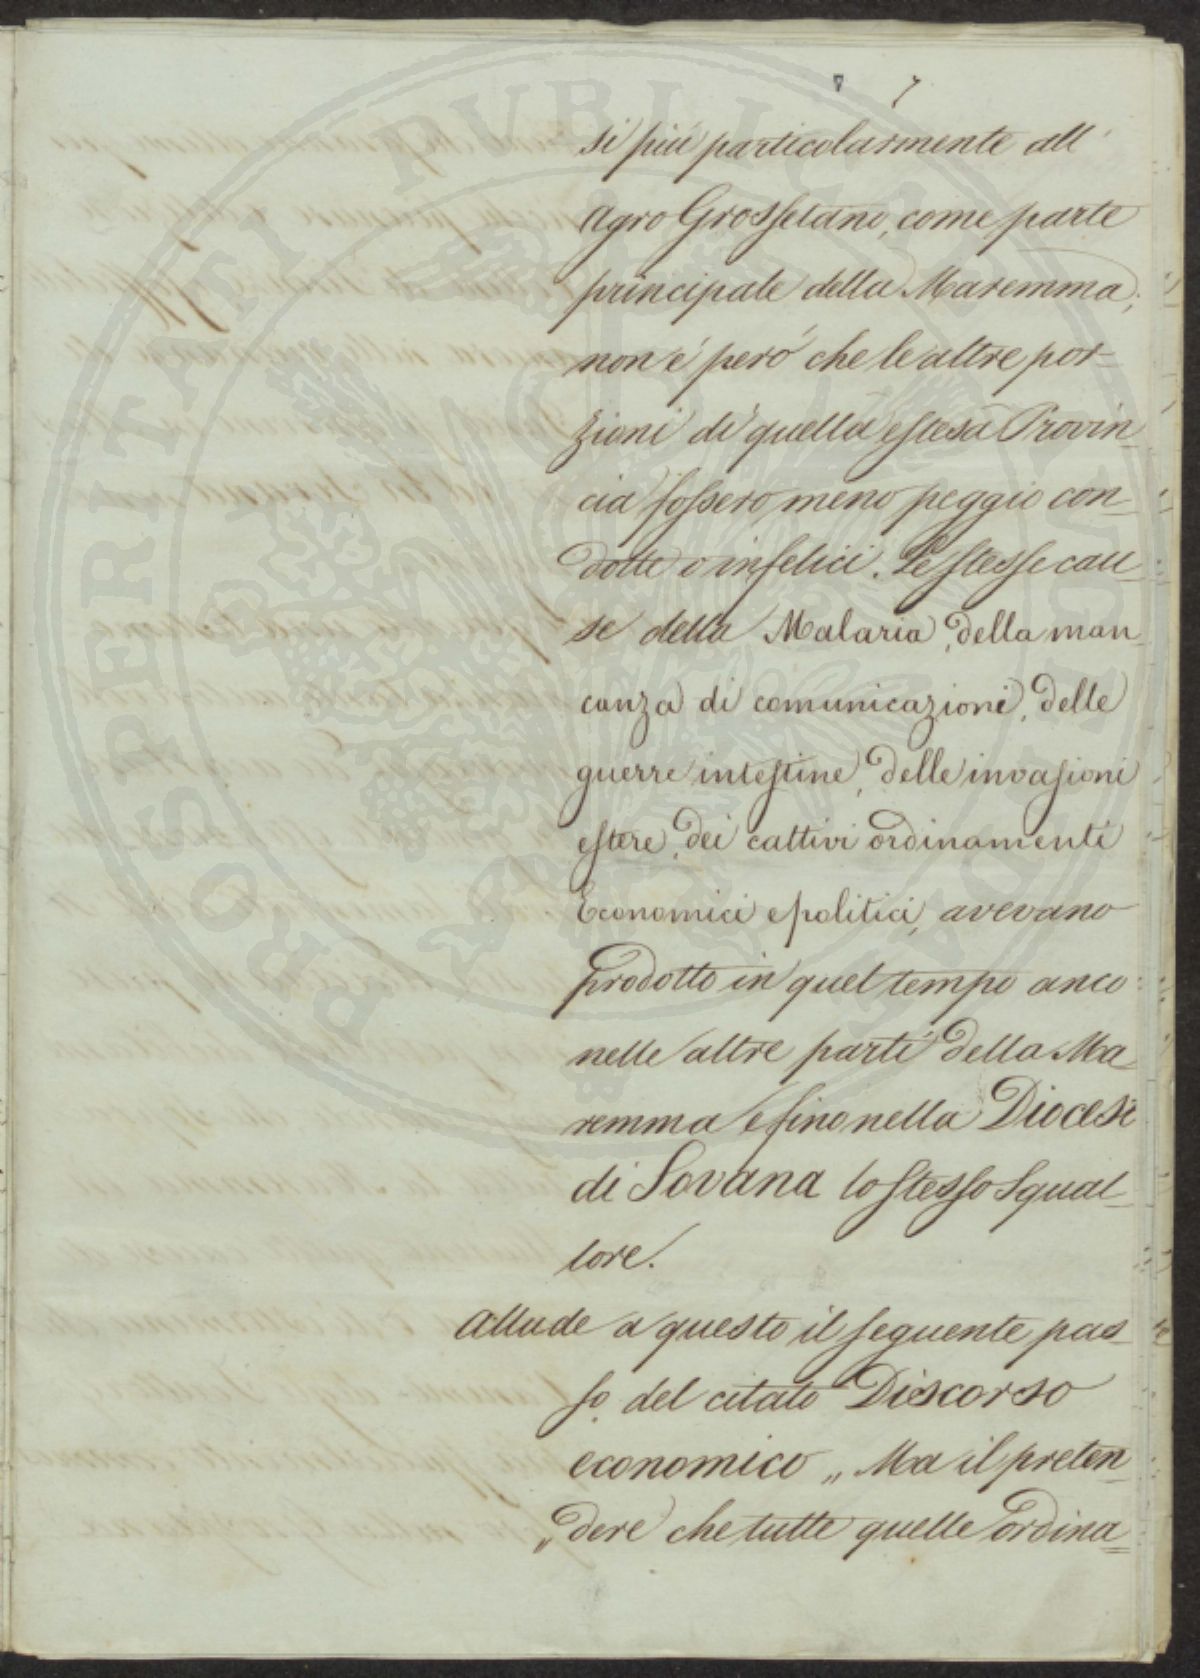 7
si più particolarmente all'
Agro Grossetano, come parte
principale della Maremma;
non é però che le altre por-
zioni di quella estesa Provin-
cia fossero meno peggio con-
dotte o infelici. Le stesse cau-
se della Malaria, della man-
canza di comunicazioni, delle
guerre intestine, delle invasioni
estere, dei cattivi ordinamenti
Economici e politici, avevano
prodotto in quel tempo anco
nelle altre parti della Ma-
remma e fino nella Diocesi
di Sovana lo stesso squal-
lore.
Allude a questo il seguente pas-
so del citato Discorso
economico „ Ma il preten-
„ dere che tutte quelle ordina=
PROSPERITATI PUBLICAE